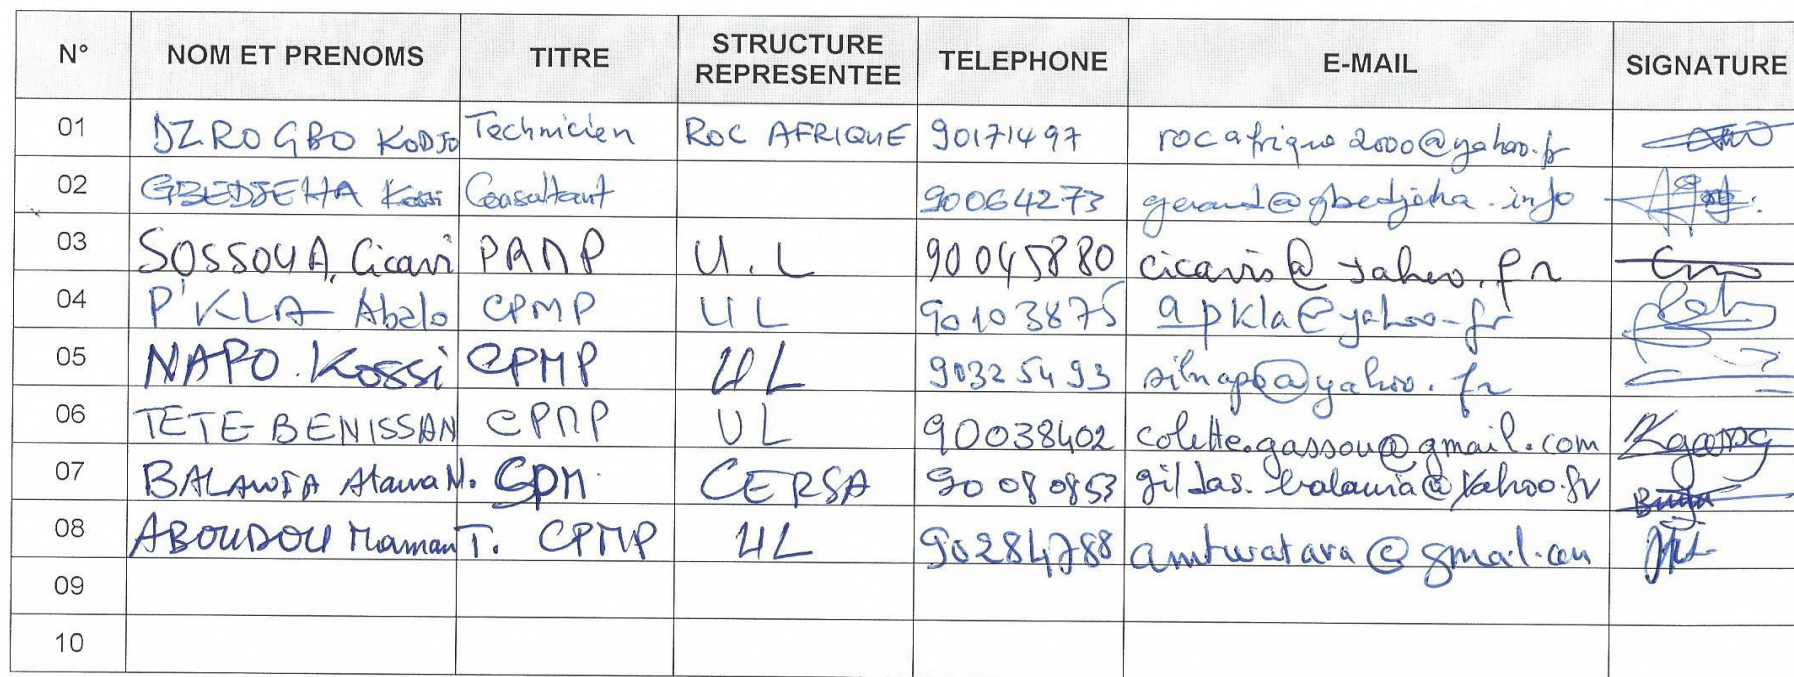 N° NOM ET PRENOMS TITRE STRUCTURE REPRESENTEE TELEPHONE E-MAIL SIGNATURE
01 DZROGBO KODJO Technicien ROC AFRIQUE 90171497 rocafrique2000@yahoo.fr
02 GBEDJEHA Kossi Consultant 90064273 gerard@gbedjeha.info
03 SOSSOU A. Cicavi PRMP U.L 90045880 cicavis@yahoo.fr
04 P'KLA Abalo CPMP UL 90103875 apkla@yahoo.fr
05 NAPO Kossi CPMP UL 90325493 silnapo@yahoo.fr
06 TETE-BENISSAN CPMP UL 90038402 colette.gassou@gmail.com
07 BALAWIA Atawa M. CPM CERSA 90080853 gildas.balawia@yahoo.fr
08 ABOUDOU Maman T. CPMP UL 90284788 amtwatara@gmail.com
09
10